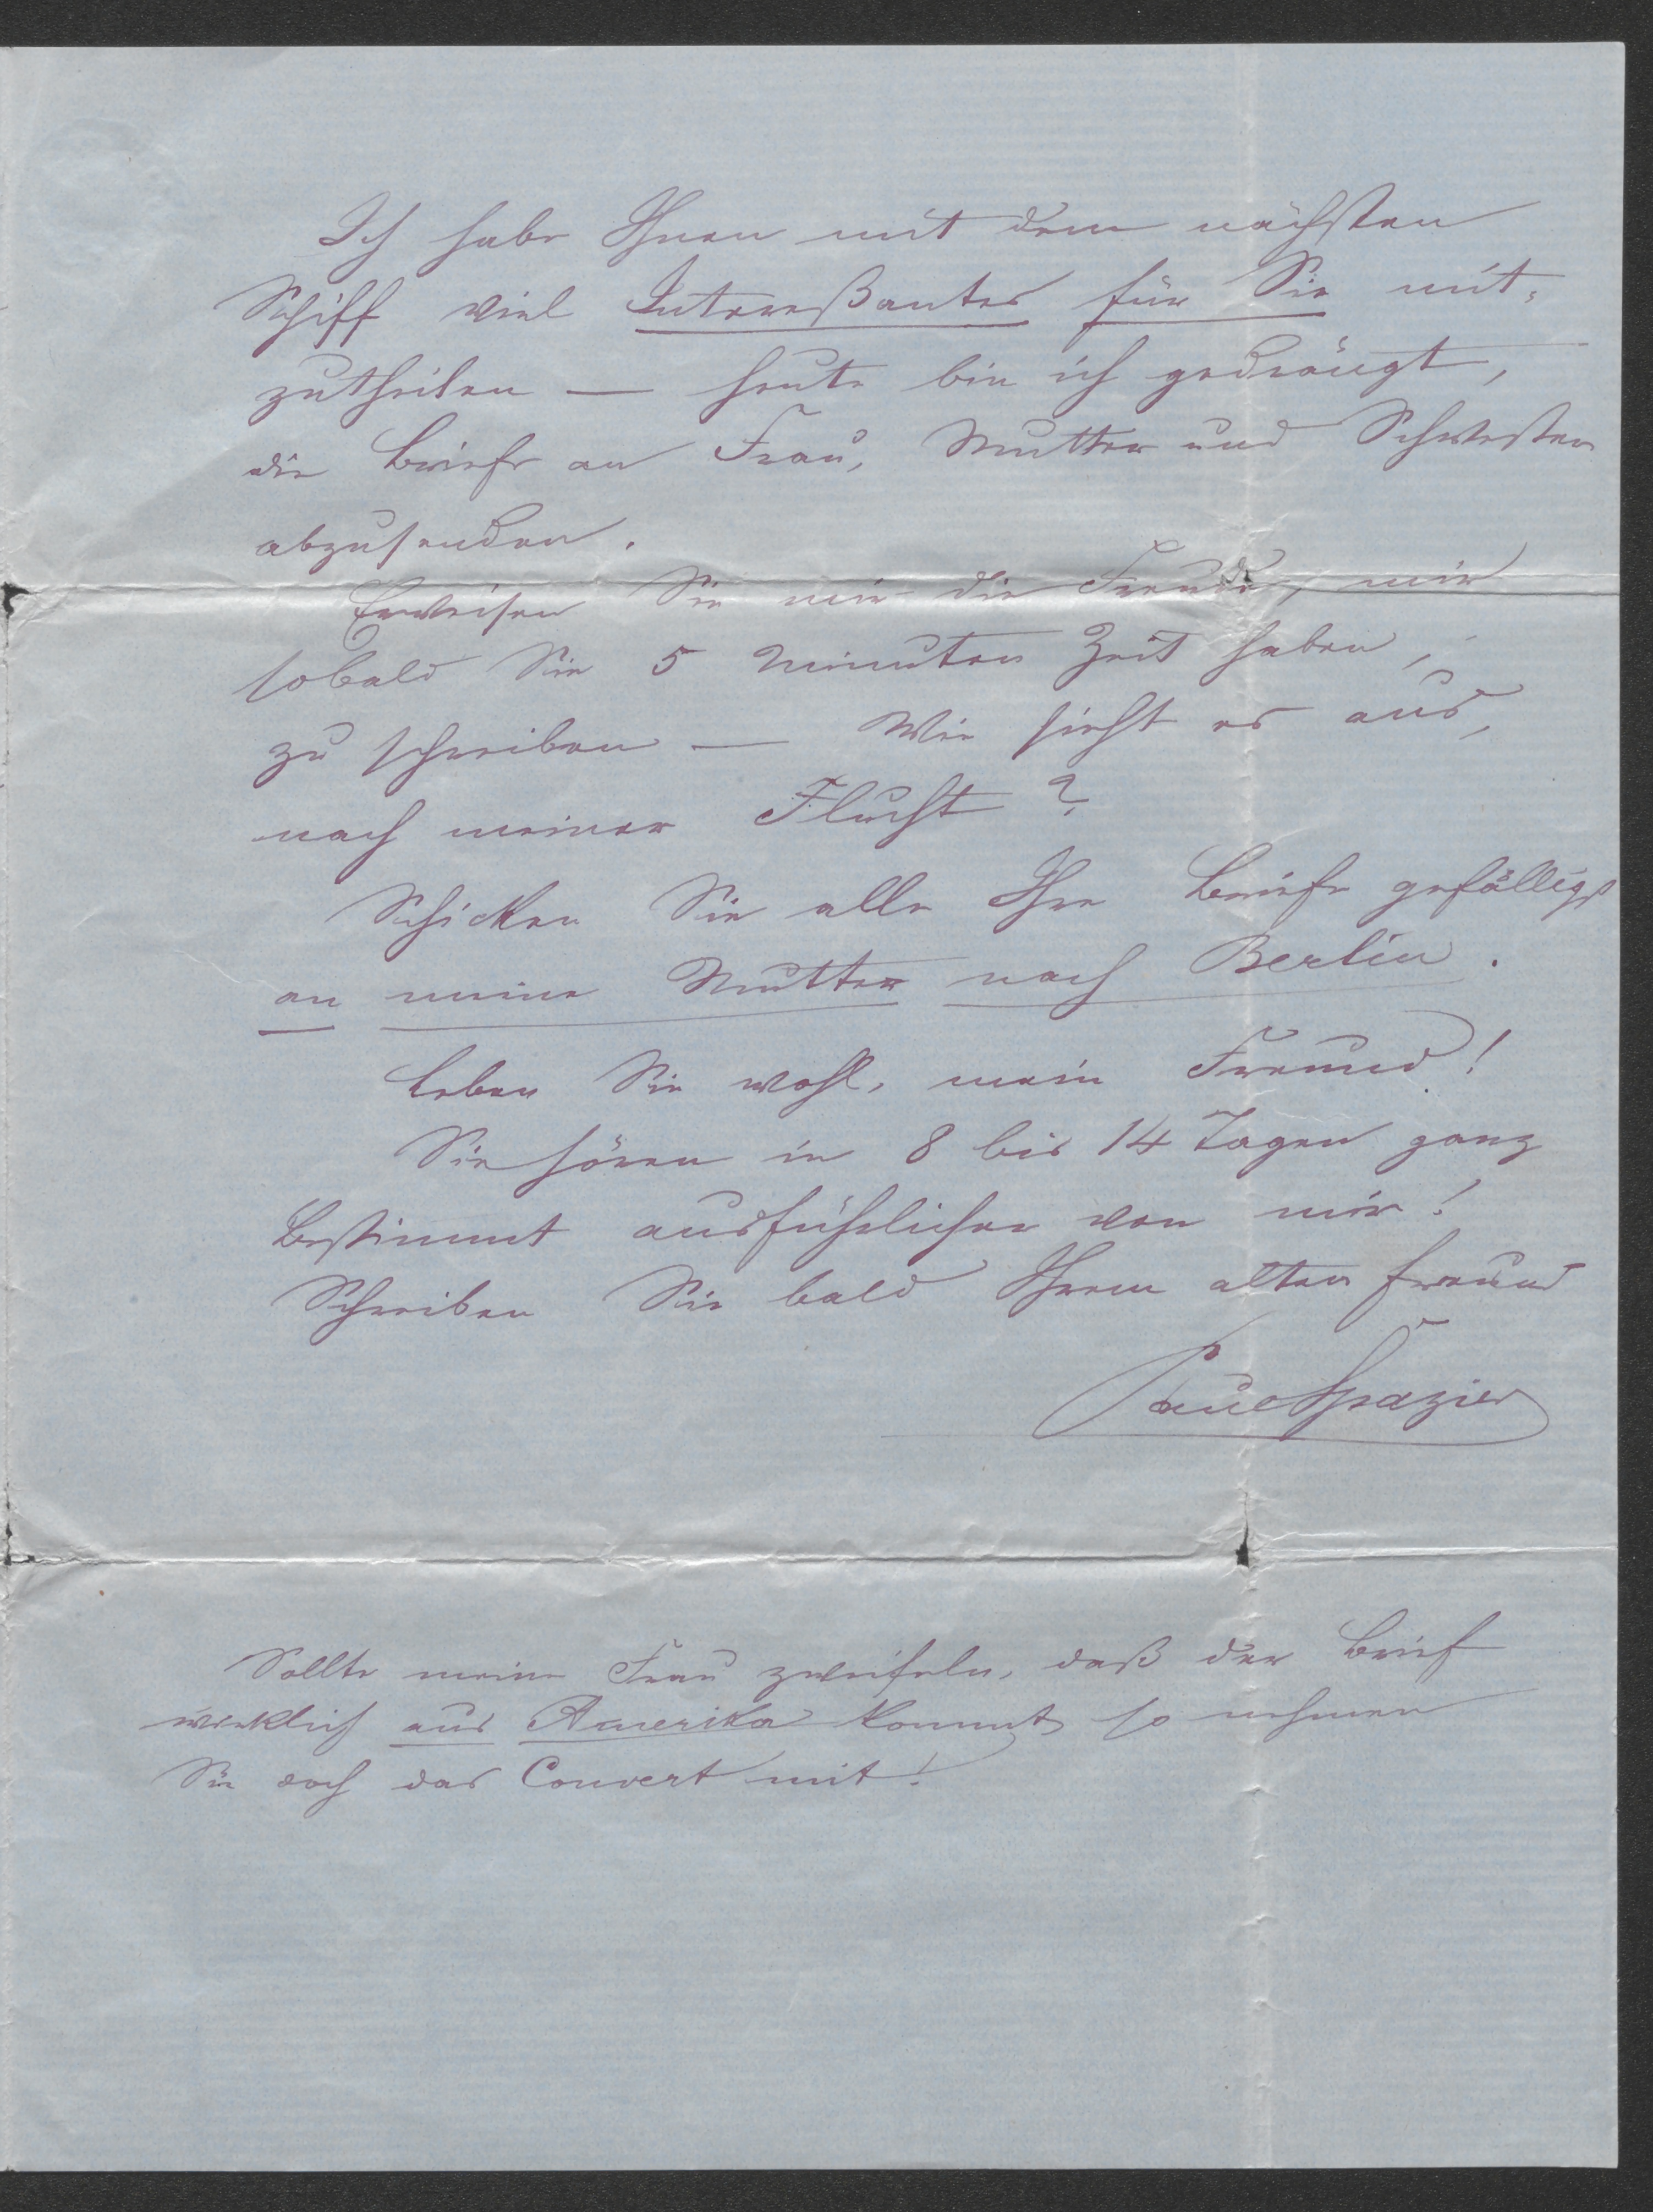 Ich habe Ihnen mit dem nächsten
Schiff viel Intereßantes für Sie mit-
zutheilen — heute bin ich gedrängt,
die Briefe an Frau, Mutter und Schwester
abzusenden.
Erweisen Sie mir die Freude, mir
sobald Sie 5 Minuten Zeit haben,
zu schreiben — Wie sieht es aus,
nach meiner Flucht?
Schicken Sie alle Ihre Briefe gefälligst
an meine Mutter nach Berlin.
Leben Sie wohl, mein Freund!
Sie hören in 8 bis 14 Tagen ganz
bestimmt ausführlicher von mir!
Schreiben Sie bald Ihrem alten Freund
Paul Spazier
Sollte meine Frau zweifeln, daß der Brief
wirklich aus Amerika kommt, so nehmen
Sie doch das Couvert mit!